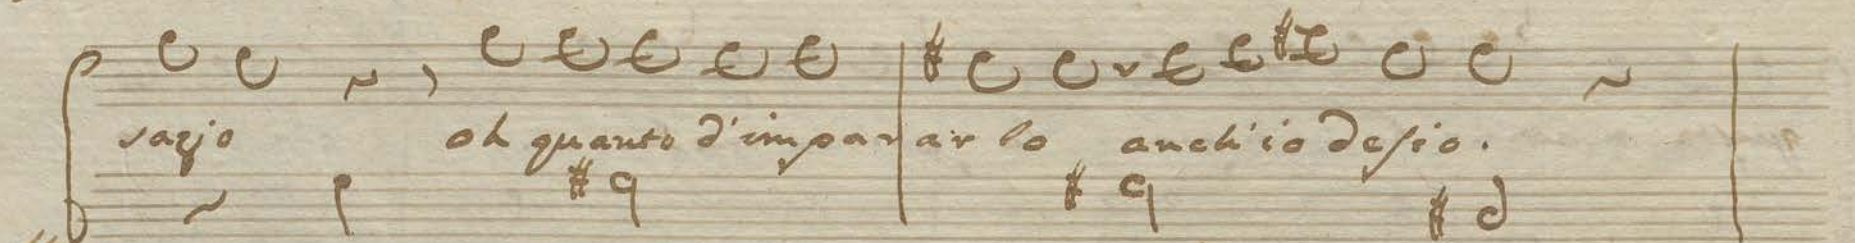 sazio oh quanto d'imparar lo anch'io desio.